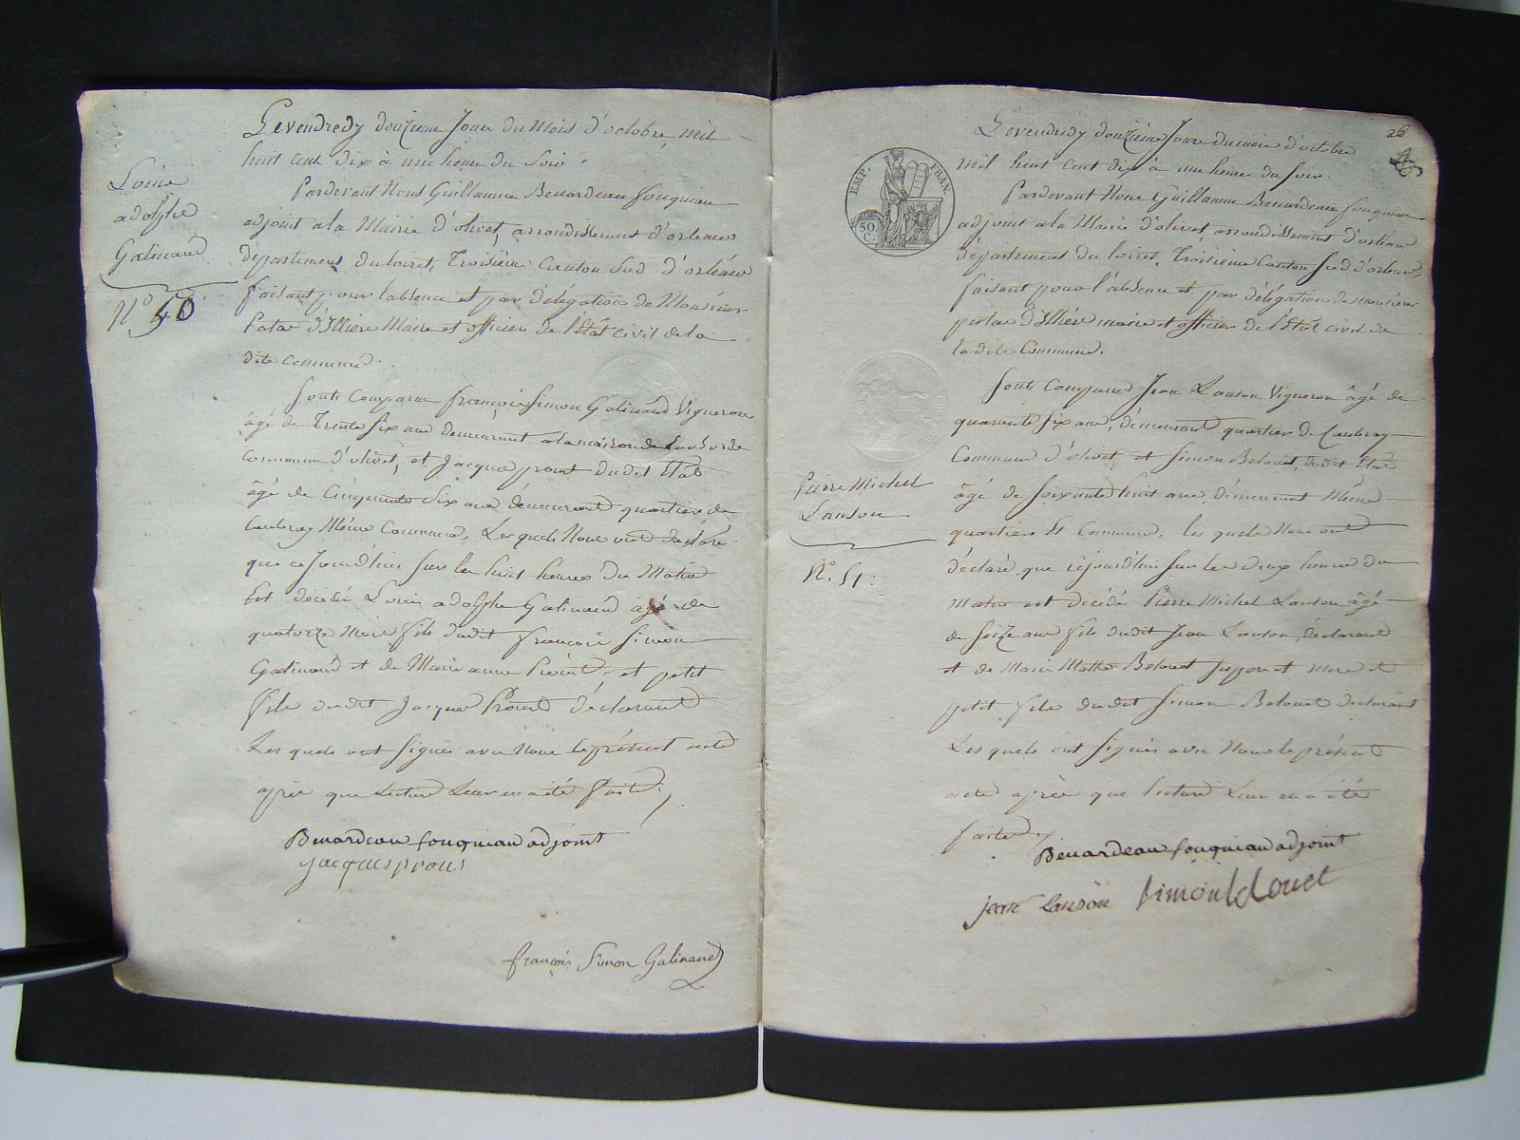 Louis
adolphe
Galinand
N° 50
Le vendredy douzieme Jour du Mois d'octobre, mil
huit cent dix à une heure du Soir.
Pardevant Nous Guillaume Benardeau fouqueau
adjoint a la Mairie d'olivet, arrondissement d'orleans
département du loiret, Troisième Canton Sud d'orléans
faisant pour l'absence et par délégation de Monsieur
Maire et officier de l'état civil de la
dite commune.
Sont Comparus françois Simon Galinand Vigneron
âgé de Trente Six ans demeurant a la
Commune d'olivet, et Jacques prout dudit Etat
âgé de Cinquante Six ans demeurant quartier de
Caubray Même Commune, Lesquels Nous ont déclaré
que ce Jourd'hui sur les huit heures du Matin
Est décédé Louis adolphe Galinand âgé de
quatorze Mois fils dudit françois Simon
Galinand et de Marie anne Prout, et petit
fils dudit Jacques Prout déclarant
Lesquels ont Signés avec Nous le présent acte
après que Lecture Leur en a été faite.
Benardeau fouqueau adjoint
jacques prout
françois Simon Galinand
26
EMP. FRAN.
50 C.
Le vendredy douzieme Jour du mois d'octobre
mil huit cent dix à une heure du soir.
Pardevant Nous Guillaume Benardeau fouqueau
adjoint a la Mairie d'olivet arrondissement d'orléans
département du loiret, Troisieme Canton Sud d'orléans
faisant pour l'absence et par délégation de monsieur
maire et officier de l'état civil de
la dite Commune.
Sont Comparus Jean Lanson Vigneron âgé de
quarante six ans, demeurant quartier de Caubray
Commune d'olivet et Simon Belouet, dudit Etat
âgé de soixante huit ans, demeurant Même
quartier et Commune, lesquels Nous ont
déclaré que cejourd'hui sur les deux heures du
Matin est décédé Pierre Michel Lanson âgé
de seize ans fils dudit Jean Lanson, déclarant
et de Marie Belouet et
petit fils dudit Simon Belouet declarant
Lesquels ont signés avec Nous le présent
acte après que lecture Leur en a été
faite.
Pierre Michel
Lanson
N°. 51.
Benardeau fouqueau adjoint
jean Lanson Simon blouet